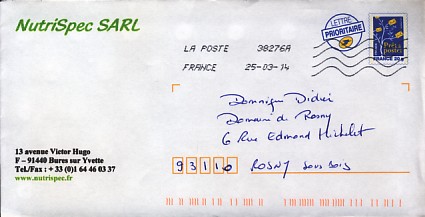 NutriSpec SARL
LETTRE
PRIORITAIRE
LA POSTE 38276A
FRANCE 25-03-14
Prêt à
poster
FRANCE 20g
Dominique Didier
Domaine de Rosny
6 Rue Edmond Michelet
93110 ROSNY sous bois
13 avenue Victor Hugo
F – 91440 Bures sur Yvette
Tel./Fax : + 33 (0)1 64 46 03 37
www.nutrispec.fr